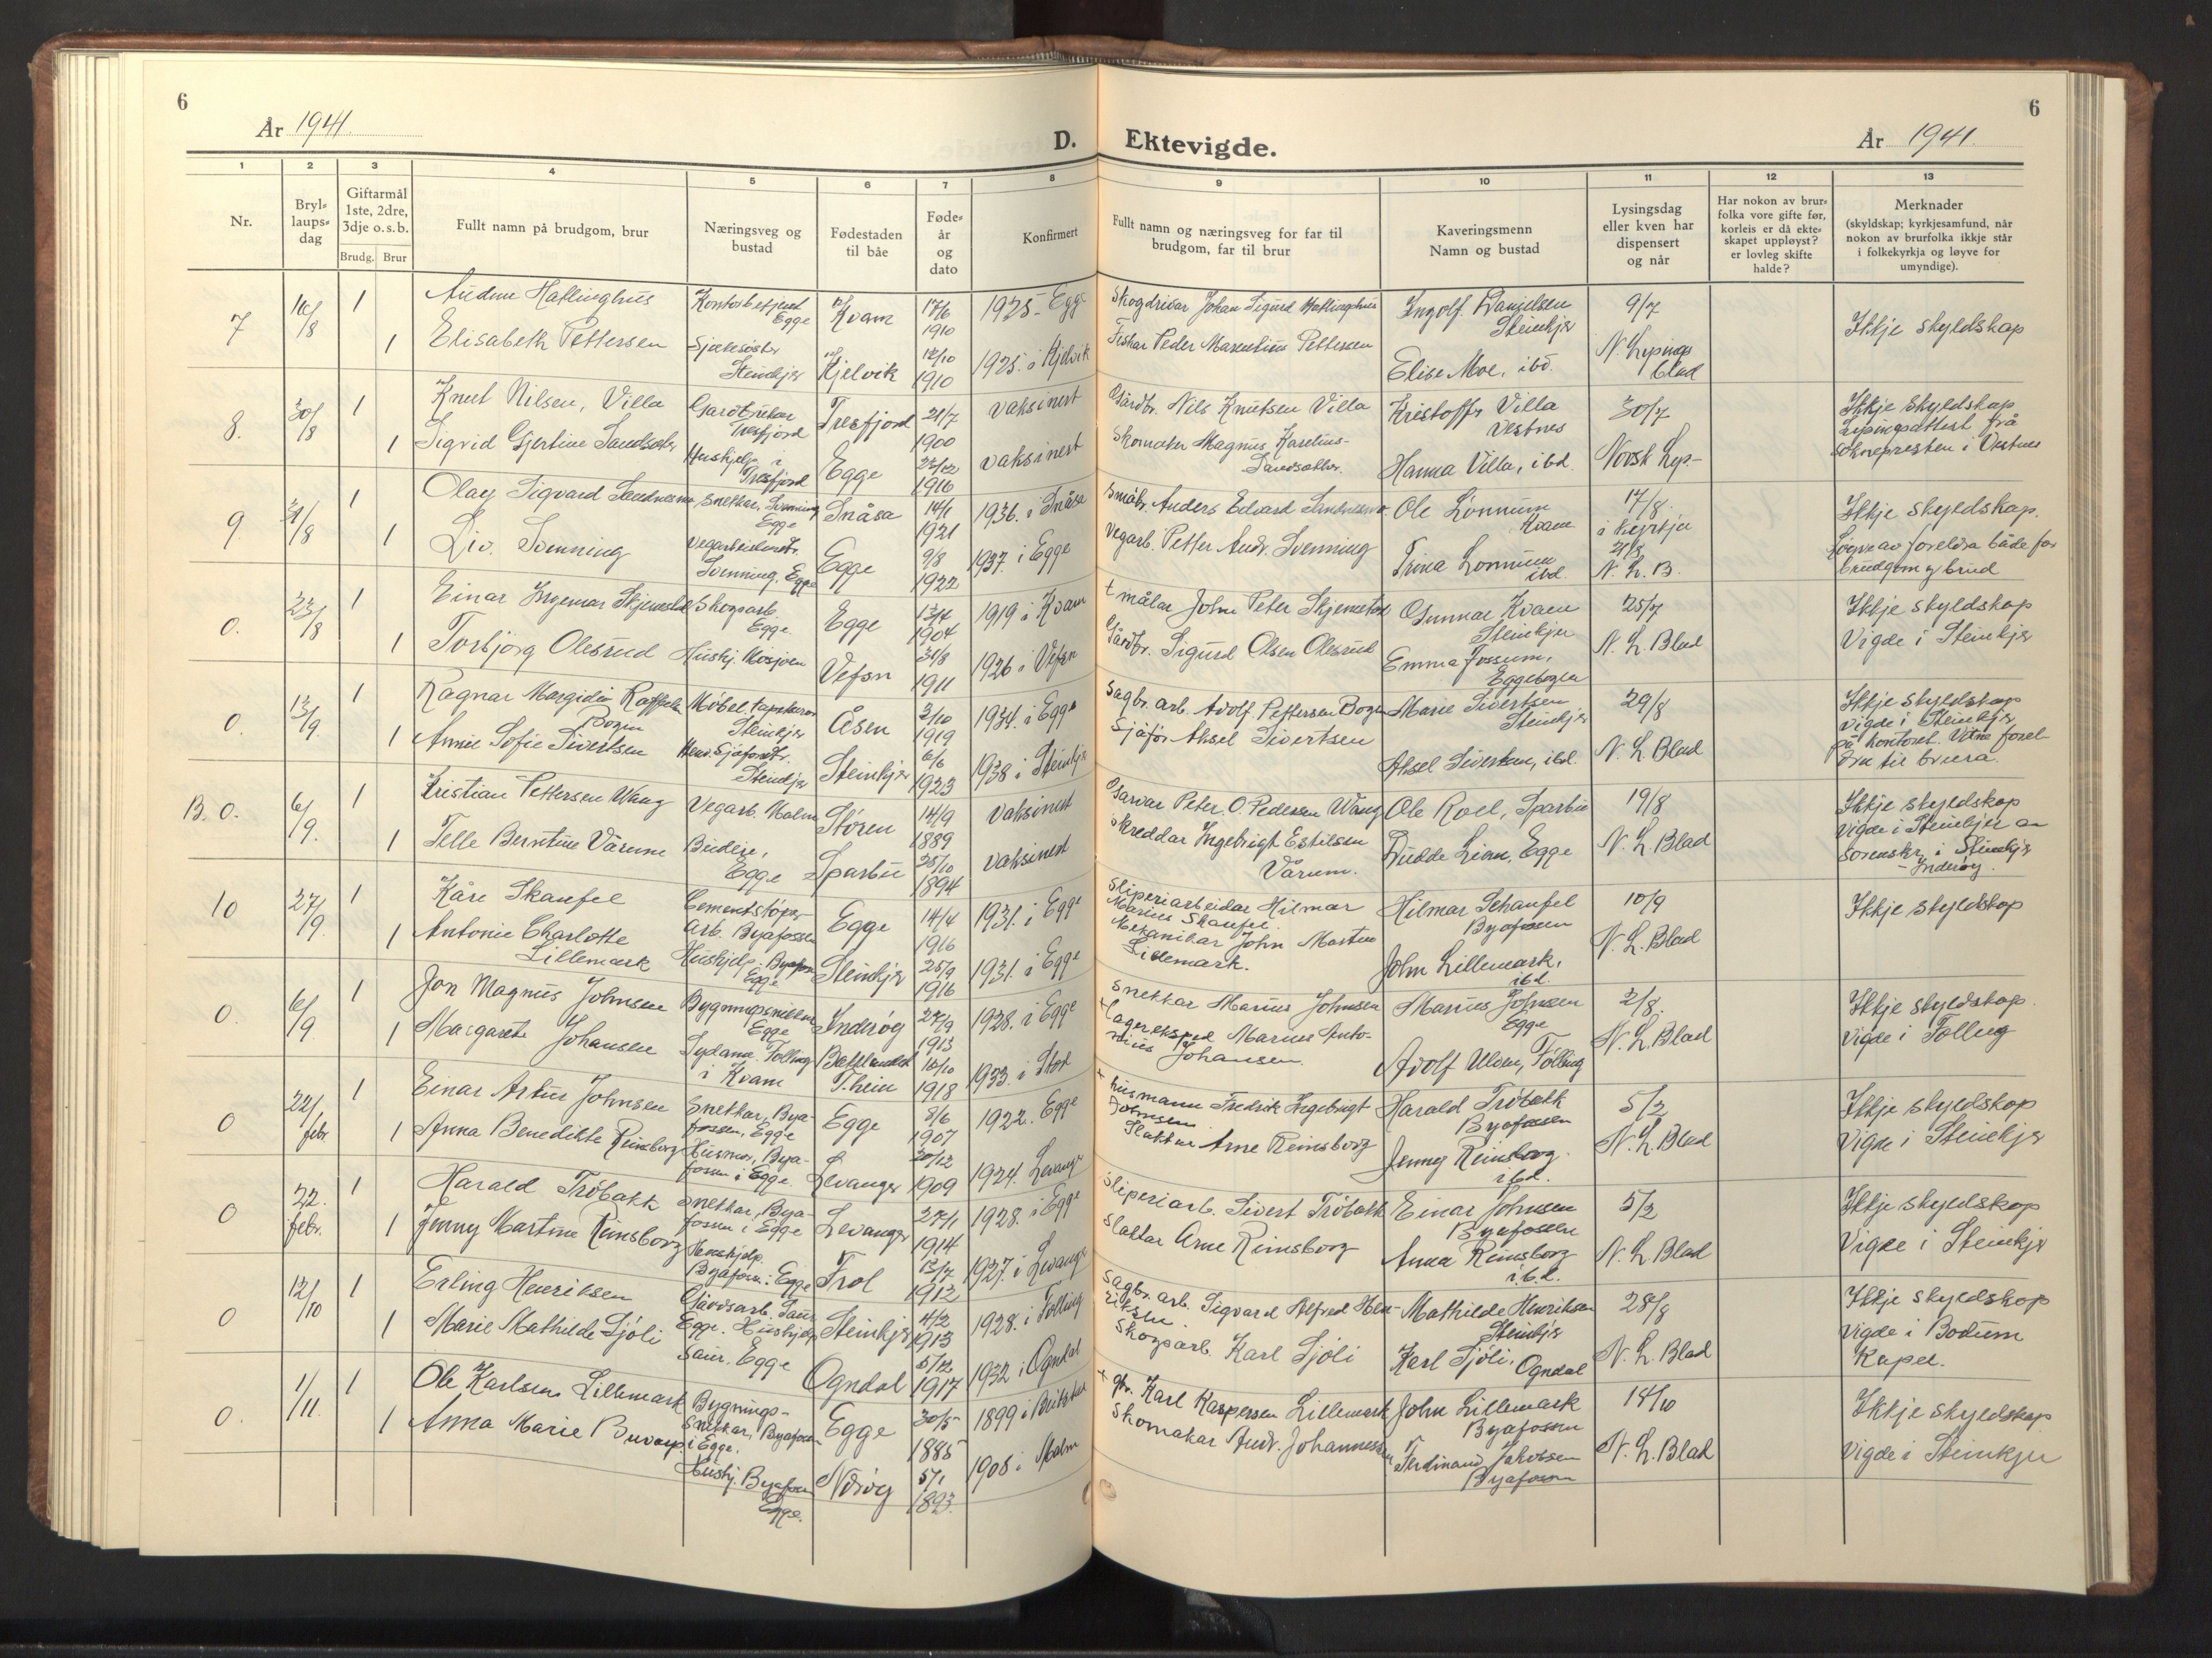 6
År 1941
D.
1 2 3 4 5 6 7 8
Nr.
Bryl-
laups-
dag
Giftarmål
1ste, 2dre,
3dje o.s.b.
Brudg. Brur
Fullt namn på brudgom, brur
Næringsveg og
bustad
Fødestaden
til båe
Føde-
år
og
dato
Konfirmert
7 /8 1 Audun Hallinghus Egge Kvam 17/6 1910 1925 Egge
1 Elisabeth Pettersen Steinkjer Kjelvik 1910 1925 i Kjelvik
8. 30/8 1 Knut Nilsen, Villa Gardbrukar Tresfjord Tresfjord 21/7 1900 vaksinert
1 Sigrid Gjertine Hushjelp i Tresfjord Egge 1916 vaksinert
9. /8 1 Olav Sigvard Snekkar, Svenning Egge Snåsa 1921 1936. i Snåsa
1 Liv Svenning Svenning, Egge Egge 9/8 1922 1937. i Egge
0. 23/8 1 Einar Ingemar Skogsarb. Egge Egge 1904 1919 i Kvam
1 Torbjørg Olesrud Hushj. Mosjøen Vefsn 31/8 1911 1926 i Vefsn
0. 13/9 1 Ragnar Margido Bogen Møbeltapetserer Steinkjer Åsen 3/10 1919 1934. i Egge
1 Sofie Sivertsen Steinkjer Steinkjer 6/6 1923 1938 i Steinkjer
B. 0. 6/9. 1 Kristian Pettersen Wang Vegarb. Malm Støren 14/9 1889 vaksinert
1 Berntine Vårum Budeie, Egge Sparbu 25/10 1894 vaksinert
10 27/9. 1 Kåre Skaufel Cementstøper arb. Byafossen Egge 14/4 1916 1931. i Egge
1 Antonie Charlotte Lillemark Hushjelp Byafossen Egge Steinkjer 25/9 1916 1931. i Egge
0. 6/9. 1 Jon Magnus Johnsen Bygningssnekkar Egge Inderøy 27/9 1913 1928. i Egge
1 Margarete Johansen Følling i Kvam 1918 1933. i Stod
0 22/febr 1 Einar Artur Johnsen Snekkar, Byafossen, Egge Egge 8/6 1907 1922. Egge
1 Anna Benedikte Reinsborg Husmor, Byafossen i Egge Levanger 20/12 1909 1924. Levanger
0 22. febr. 1 Harald Trøbakk Snekkar, Byafossen i Egge Levanger 27/1 1914 1928. i Egge
1 Jenny Martine Reinsborg Hushjelp Byafossen i Egge Frol 13/7 1912 1927. i Levanger
0 12/10 1 Erling Henriksen Gårdsarb. Egge. Steinkjer 4/2 1913 1928. i Følling
1 Marie Mathilde Sjøli Hushjelp Egge Ogndal 5/12 1917 1932 i Ogndal
0. 1/11. 1 Ole Karlsen Lillemark Bygnings-snekkar, Byafossen i Egge. Egge 30/5 1885 1899 i
1 Anna Marie Hushj. Byafossen Egge. Nærøy 5/1 1893. 1908 i Malm
6
Ektevigde.
År 1941.
9 10 11 12 13
Fullt namn og næringsveg for far til
brudgom, far til brur
Kaveringsmenn
Namn og bustad
Lysingsdag
eller kven har
dispensert
og når
Har nokon av brur-
folka vore gifte før,
korleis er då ekte-
skapet uppløyst?
er lovleg skifte
halde?
Merknader
(skyldskap; kyrkjesamfund, når
nokon av brurfolka ikkje står
i folkekyrkja og løyve for
umyndige).
Skogdrivar Johan Sigurd Hallinghus Ingolf Danielsen Steinkjer 9/7 Ikkje skyldskap
Fiskar Peder Marentius Pettersen Elise Moe, ibd. N. Lysings blad
Gardbr. Nils Knutsen Villa Kristoffer Villa Vestnes 30/7 Ikkje skyldskap
Skomaker Magnus Karelius Hanna Villa, ibd. Norsk Lys- Lysingsattest frå soknepresten i Vestnes
Småbr. Anders Edvard Ole Lønnum Kvam 17/8. i kyrkja Ikkje skyldskap.
Vegarb. Petter Andr. Svenning Trina Lønnum ibd. N. L. B. Løyve av foreldra både for brudgom og brud
målar John Peter Gunnar Kvam Steinkjer 25/7 Ikkje skyldskap
Gårdbr. Sigurd Olsen Olesrud Emma Fossum, Eggebogen N. L. Blad Vigde i Steinkjer
Sagbr. arb. Adolf Pettersen Bogen Marie Sivertsen Steinkjer 29/8 Ikkje skyldskap
Sjåfør Aksel Sivertsen Aksel Sivertsen, ibd. N. L. Blad vigde i Steinkjer på kontoret. foreldra til brura.
Garvar Peter O. Pedersen Wang Ole Roel, Sparbu 19/8 Ikkje skyldskap
Skreddar Ingebrigt Eskilsen Vårum. Lian, Egge N. L. Blad vigde i Steinkjer av sorenskr. i Steinkjer - Inderøy.
Sliperiarbeidar Hilmar Marius Skaufel. Hilmar Schaufel Byafossen 10/9 Ikkje skyldskap
Mekanikar John Morten Lillemark. John Lillemark, ibd. N. L. Blad
Snekkar Marius Johnsen Marius Johnsen Egge 2/8. Ikkje skyldskap.
Lagerekspd Marius Antonius Johansen. Adolf Ulven, Følling N. L. Blad Vigde i Følling
husmann Fredrik Ingebrigt Johnsen Harald Trøbakk Byafossen 5/2 Ikkje skyldskap
Slaktar Arne Reinsborg Jenny Reinsborg ibd. N. L. Blad Vigde i Steinkjer
Sliperiarb. Sivert Trøbakk Einar Johnsen Byafossen 5/2 Ikkje skyldskap
Slaktar Arne Reinsborg Anna Reinsborg i.b.d. N. L. Blad Vigde i Steinkjer
Sagbr. arb. Sigvard Alfred Henriksen Mathilde Henriksen Steinkjer 28/8 Ikkje skyldskap
Skogsarb. Karl Sjøli Karl Sjøli, Ogndal N. L. Blad Vigde i Bodum Kapel.
gbr. Karl Kaspersen Lillemark John Lillemark Byafossen 14/10 Ikkje skyldskap
Skomakar Andr. Johannessen Ferdinand Jakobsen Byafossen N. L. Blad Vigde i Steinkjer